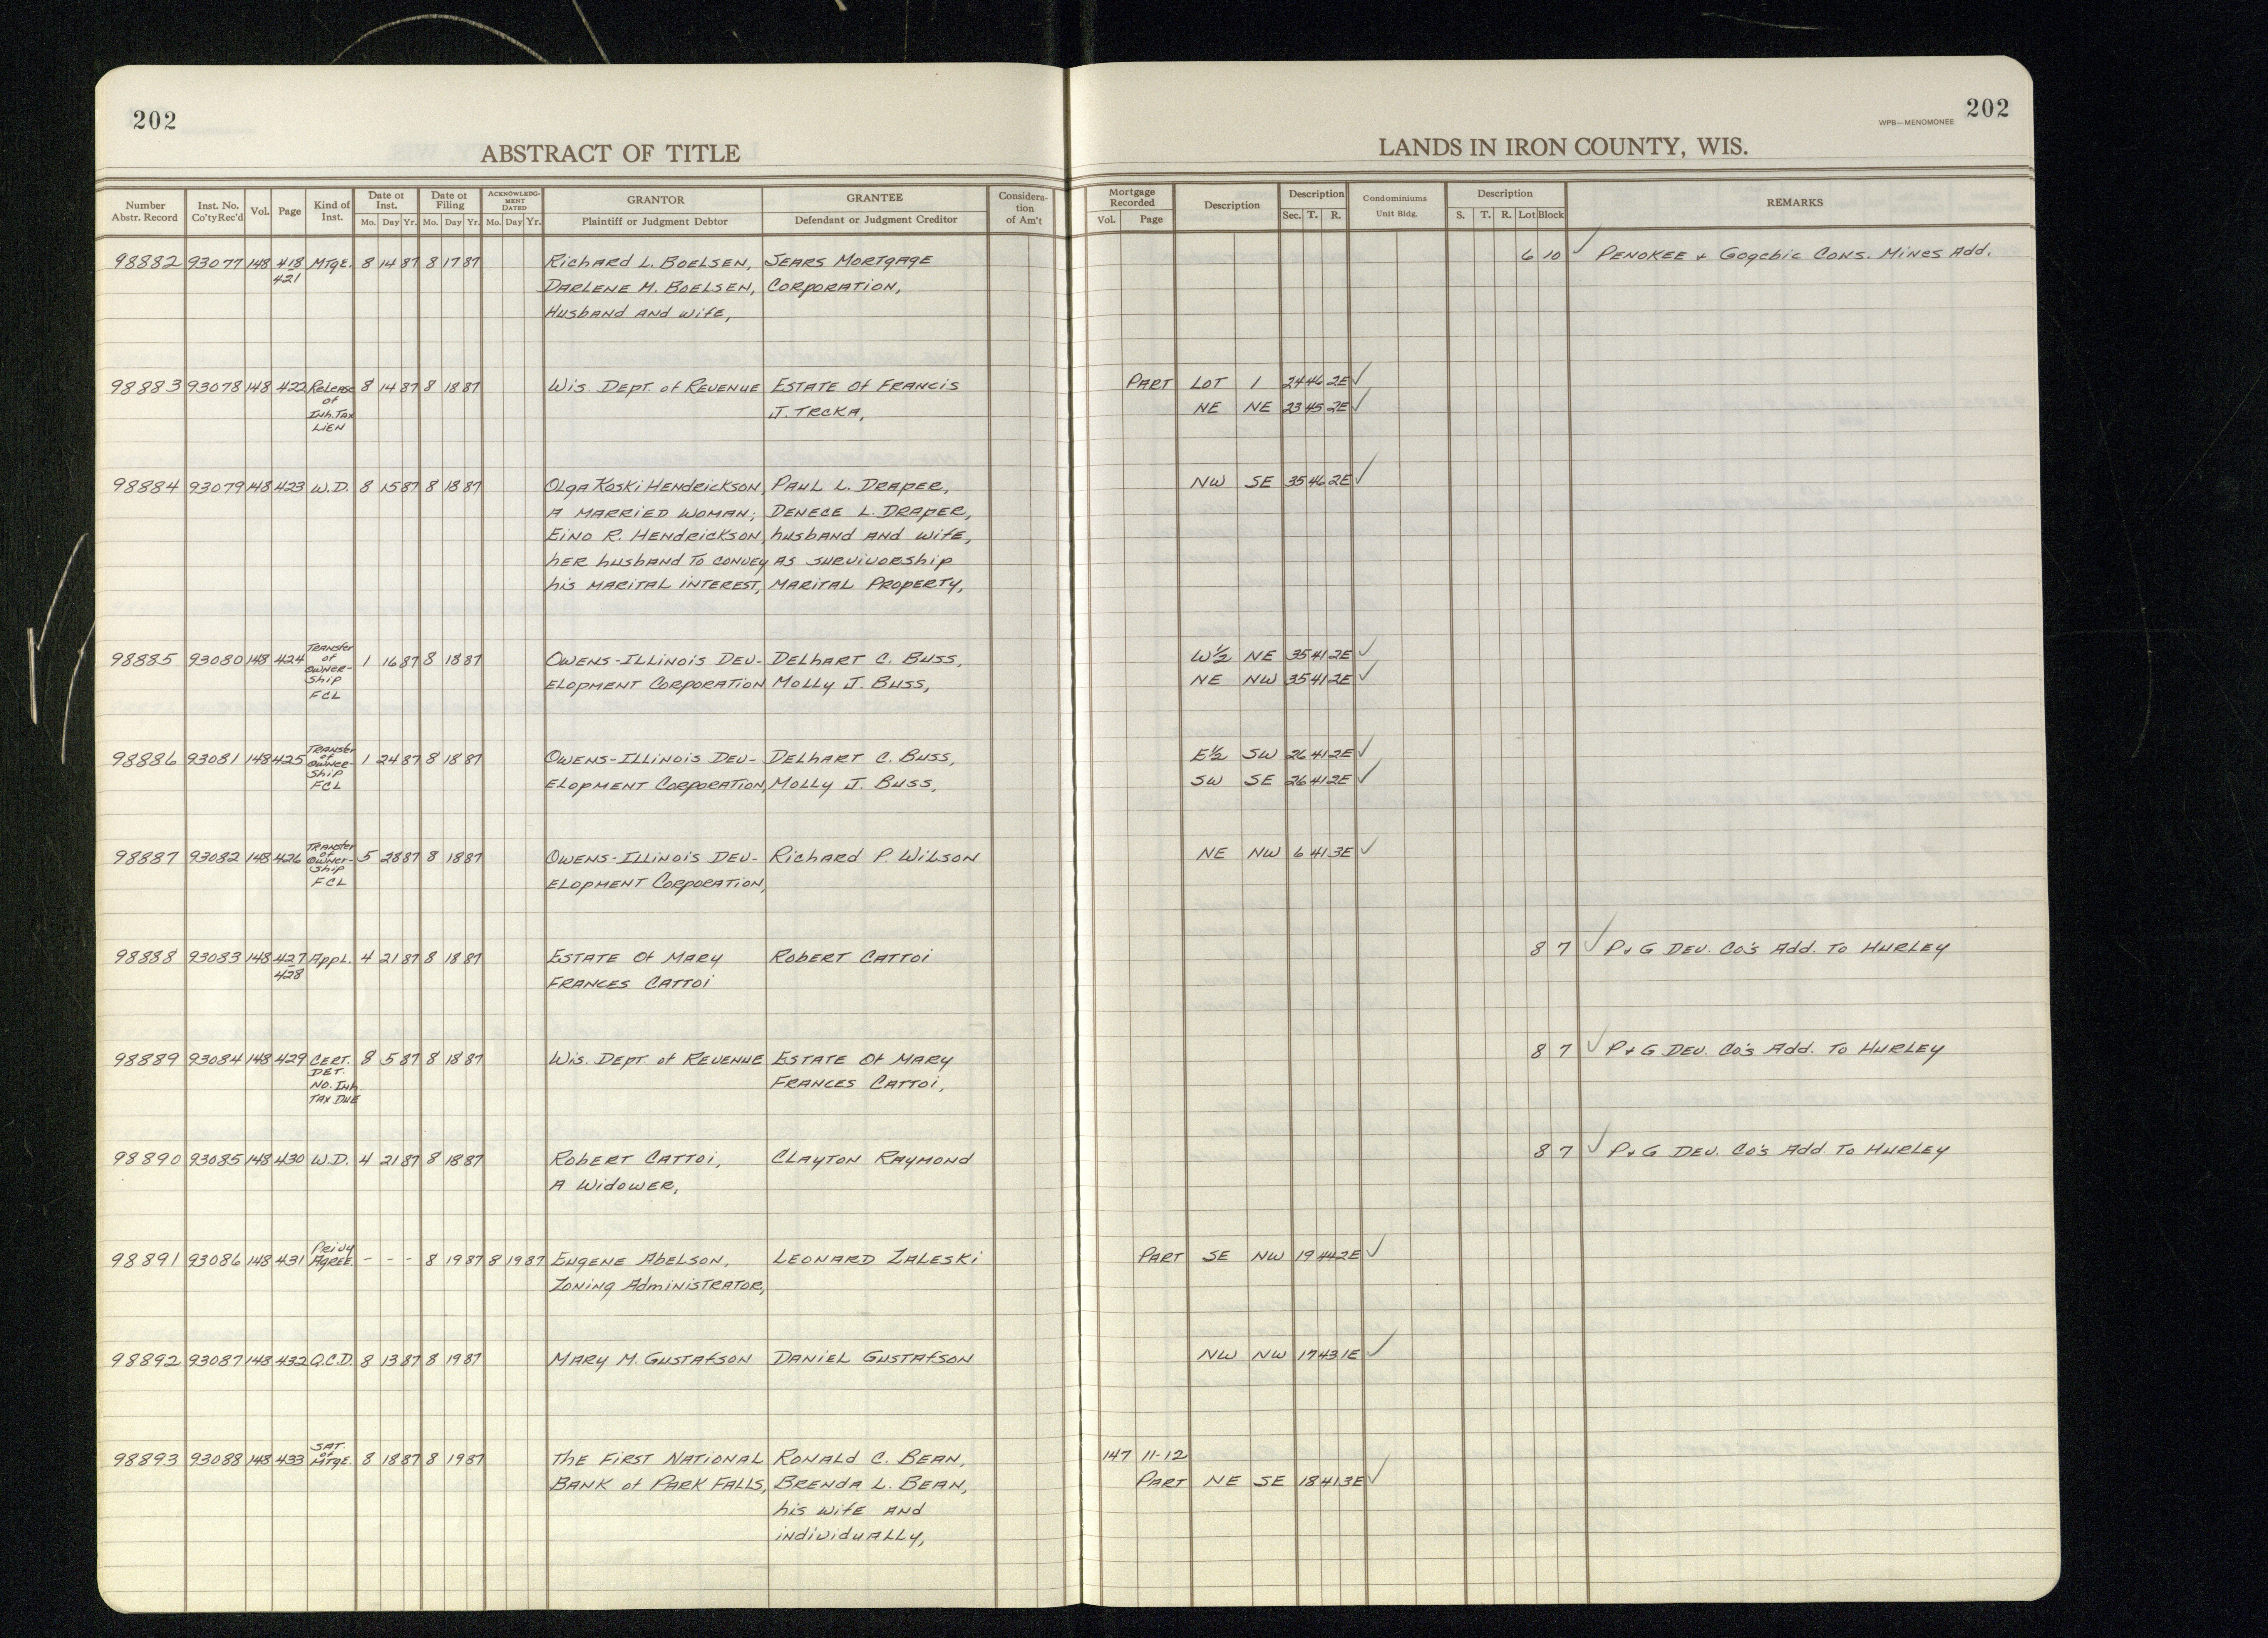 202
ABSTRACT OF TITLE
Number Abstr. Record Inst. No. Co'ty Rec'd Vol. Page Kind of Inst. Date of Inst. Mo. Day Yr. Date of Filing Mo. Day Yr. ACKNOWLEDGMENT DATED Mo. Day Yr. GRANTOR Plaintiff or Judgment Debtor GRANTEE Defendant or Judgment Creditor Consideration of Am't
202
WPB—MENOMONEE
LANDS IN IRON COUNTY, WIS.
Mortgage Recorded Vol. Page Description Description Sec. T. R. Condominiums Unit Bldg. Description S. T. R. Lot Block REMARKS
98882 93077 148 418 MTgE. 8 14 87 8 17 87 Richard L. Boelsen, Sears Mortgage 6 10 ✓ Penokee & Gogebic Cons. Mines Add.
421 Darlene M. Boelsen, Corporation,
Husband and wife,
98883 93078 148 422 Release 8 14 87 8 18 87 Wis. Dept. of Revenue Estate of Francis Part Lot 1 24 46 2E ✓
of J. Trcka, NE NE 23 45 2E ✓
Inh. Tax
Lien
98884 93079 148 423 W.D. 8 15 87 8 18 87 Olga Koski Hendrickson, Paul L. Draper, NW SE 35 46 2E ✓
a married woman; Denece L. Draper,
Eino R. Hendrickson, husband and wife,
her husband to convey as survivorship
his marital interest, marital property,
98885 93080 148 424 Transfer of Ownership FCL 1 16 87 8 18 87 Owens-Illinois Dev- Delhart C. Buss, W½ NE 35 41 2E ✓
elopment Corporation Molly J. Buss, NE NW 35 41 2E ✓
98886 93081 148 425 Transfer of Ownership FCL 1 24 87 8 18 87 Owens-Illinois Dev- Delhart C. Buss, E½ SW 26 41 2E ✓
elopment Corporation, Molly J. Buss, SW SE 26 41 2E ✓
98887 93082 148 426 Transfer of Ownership FCL 5 28 87 8 18 87 Owens-Illinois Dev- Richard P. Wilson NE NW 6 41 3E ✓
elopment Corporation,
98888 93083 148 427 Appl. 4 21 87 8 18 87 Estate of Mary Robert Cattoi 8 7 ✓ P&G Dev. Co's Add. To Hurley
428 Frances Cattoi
98889 93084 148 429 Cert. 8 5 87 8 18 87 Wis. Dept of Revenue Estate of Mary 8 7 ✓ P&G Dev. Co's Add. To Hurley
Det. Frances Cattoi,
No. Inh.
Tax Due
98890 93085 148 430 W.D. 4 21 87 8 18 87 Robert Cattoi, Clayton Raymond 8 7 ✓ P&G Dev. Co's Add. To Hurley
a widower,
98891 93086 148 431 Privy Agree. - - - 8 19 87 8 19 87 Eugene Abelson, Leonard Zaleski Part SE NW 19 44 2E ✓
Zoning Administrator,
98892 93087 148 432 Q.C.D. 8 13 87 8 19 87 Mary M. Gustafson Daniel Gustafson NW NW 17 43 1E ✓
98893 93088 148 433 Sat. of Mtge. 8 18 87 8 19 87 The First National Ronald C. Bean, 147 11-12
Bank of Park Falls, Brenda L. Bean, Part NE SE 18 41 3E ✓
his wife and
individually,